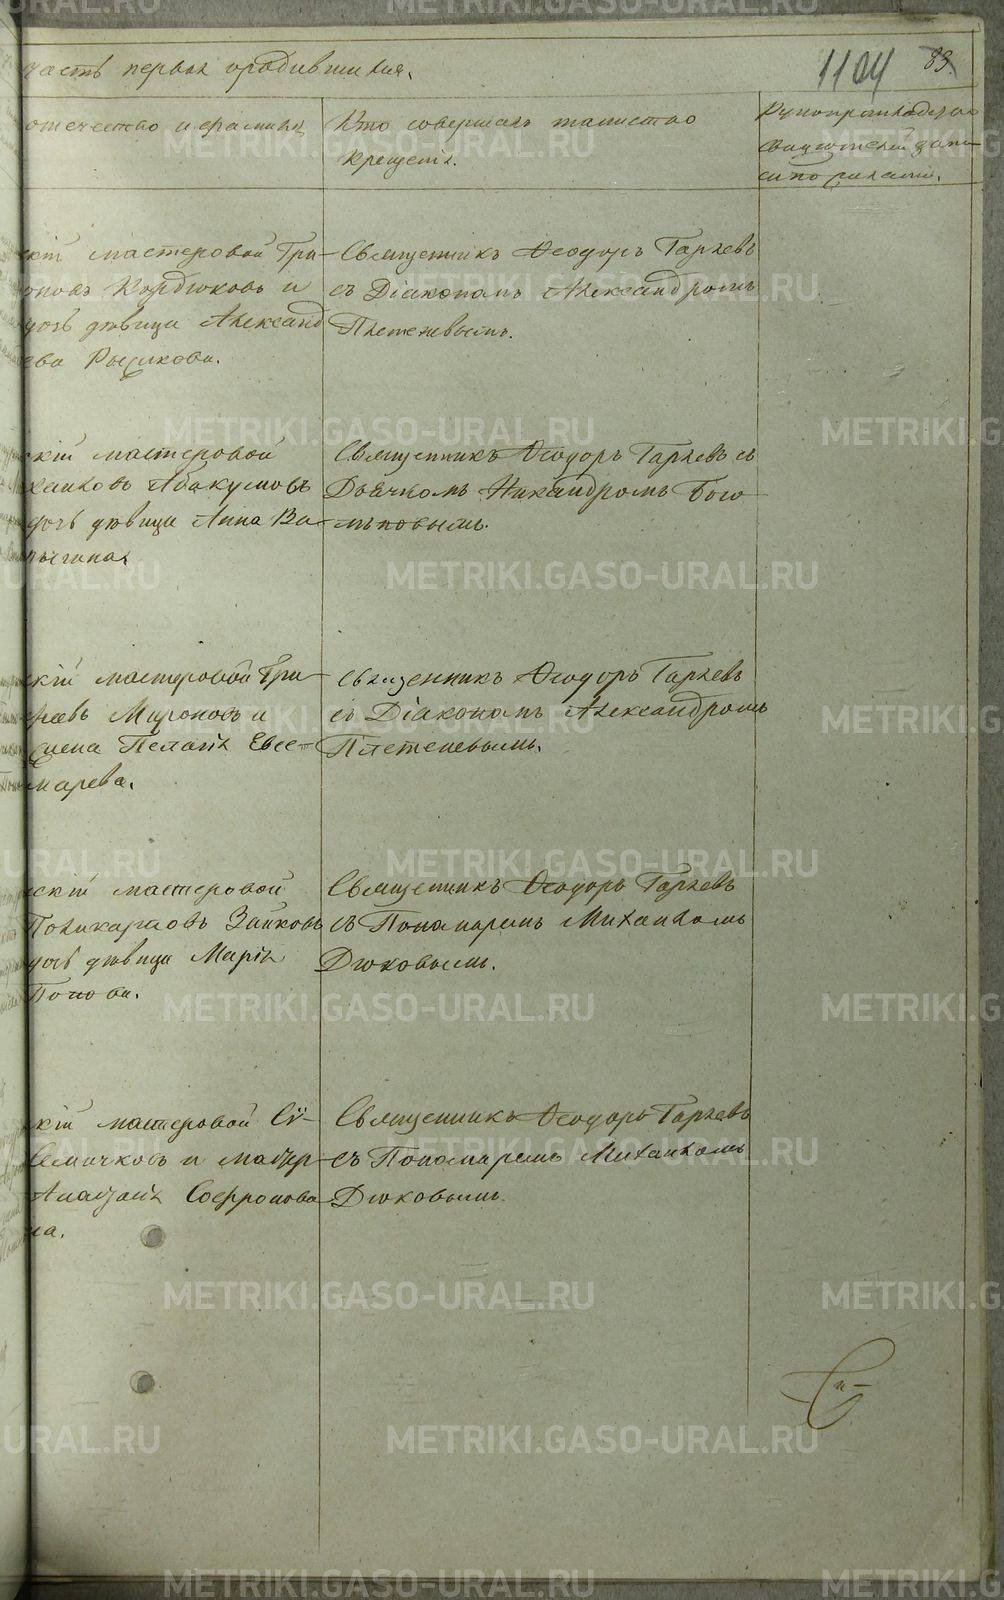 часть первая о родившихся.
1104
83.
отечество и фамилия
Кто совершалъ таинство
крещенія.
Рукоприкладство
свидѣтелей запи
си по желанію.
скій мастеровой Гри
Кордюковъ и
дѣвица Александ
ева Рыжкова.
Священникъ Ѳеодоръ Гаряевъ
съ Діакономъ Александромъ
Плетеневымъ.
скій мастеровой
Абакумовъ
дѣвица Анна Ва
Священникъ Ѳеодоръ Гаряевъ съ
Дьячкомъ Никандромъ Бого
лѣповымъ.
скій мастеровой Гри
Мироновъ и
Пелагія Евсе
марева.
Священникъ Ѳеодоръ Гаряевъ
съ Діакономъ Александромъ
Плетеневымъ.
скій мастеровой
Поликарповъ Зайковъ
дѣвица Марія
Попова.
Священникъ Ѳеодоръ Гаряевъ
съ Пономаремъ Михаиломъ
Дюковымъ.
скій мастеровой
Семичковъ и
Софронова
на.
Священникъ Ѳеодоръ Гаряевъ
съ Пономаремъ Михаиломъ
Дюковымъ.
METRIKI.GASO-URAL.RU